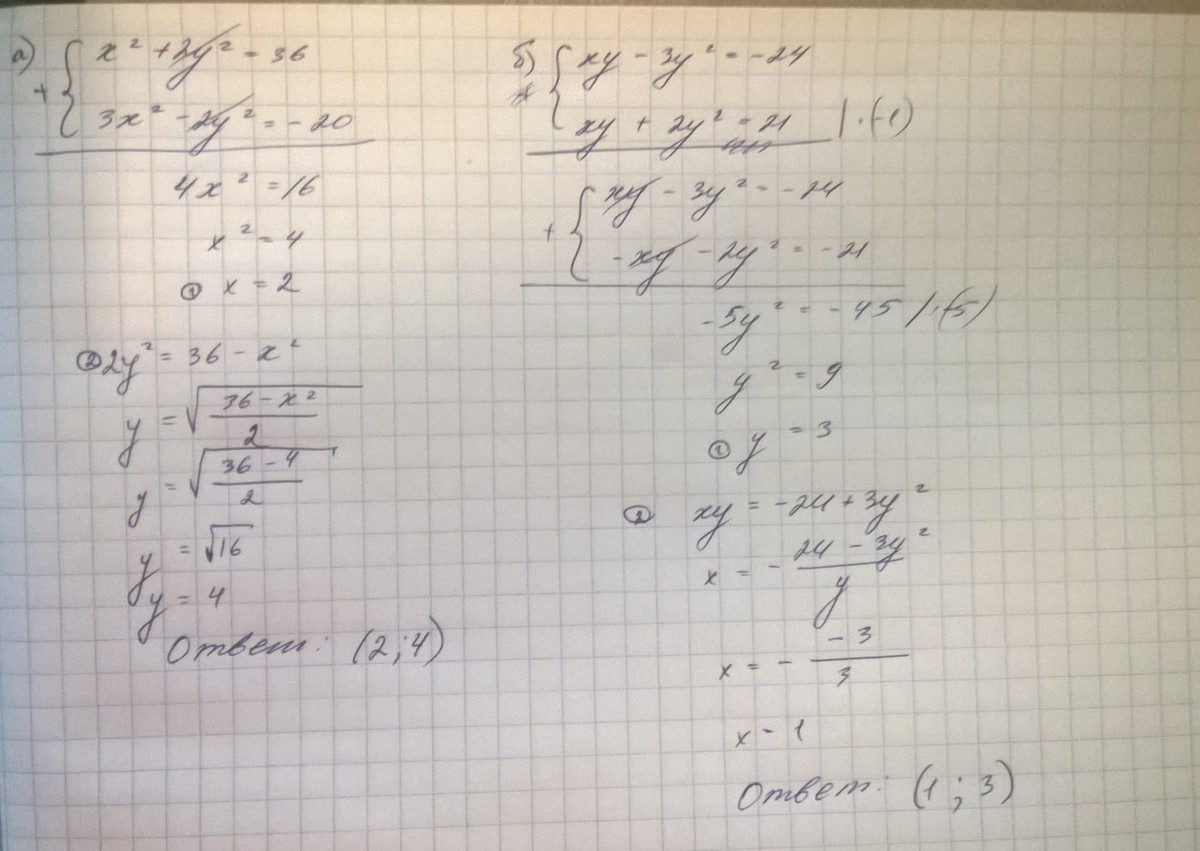 а) x² + 2y² = 36
+ 3x² - 2y² = -20
4x² = 16
x² = 4
① x = 2
② 2y² = 36 - x²
y = √((36 - x²)/2)
y = √((36 - 4)/2)
y = √16
y = 4
Ответ: (2; 4)
б) xy - 3y² = -24
xy + 2y² = 21 | · (-1)
+ xy - 3y² = -24
-xy - 2y² = -21
-5y² = -45 / · (-5)
y² = 9
① y = 3
② xy = -24 + 3y²
x = - (24 - 3y²)/y
x = - (-3)/3
x - 1
Ответ: (1; 3)